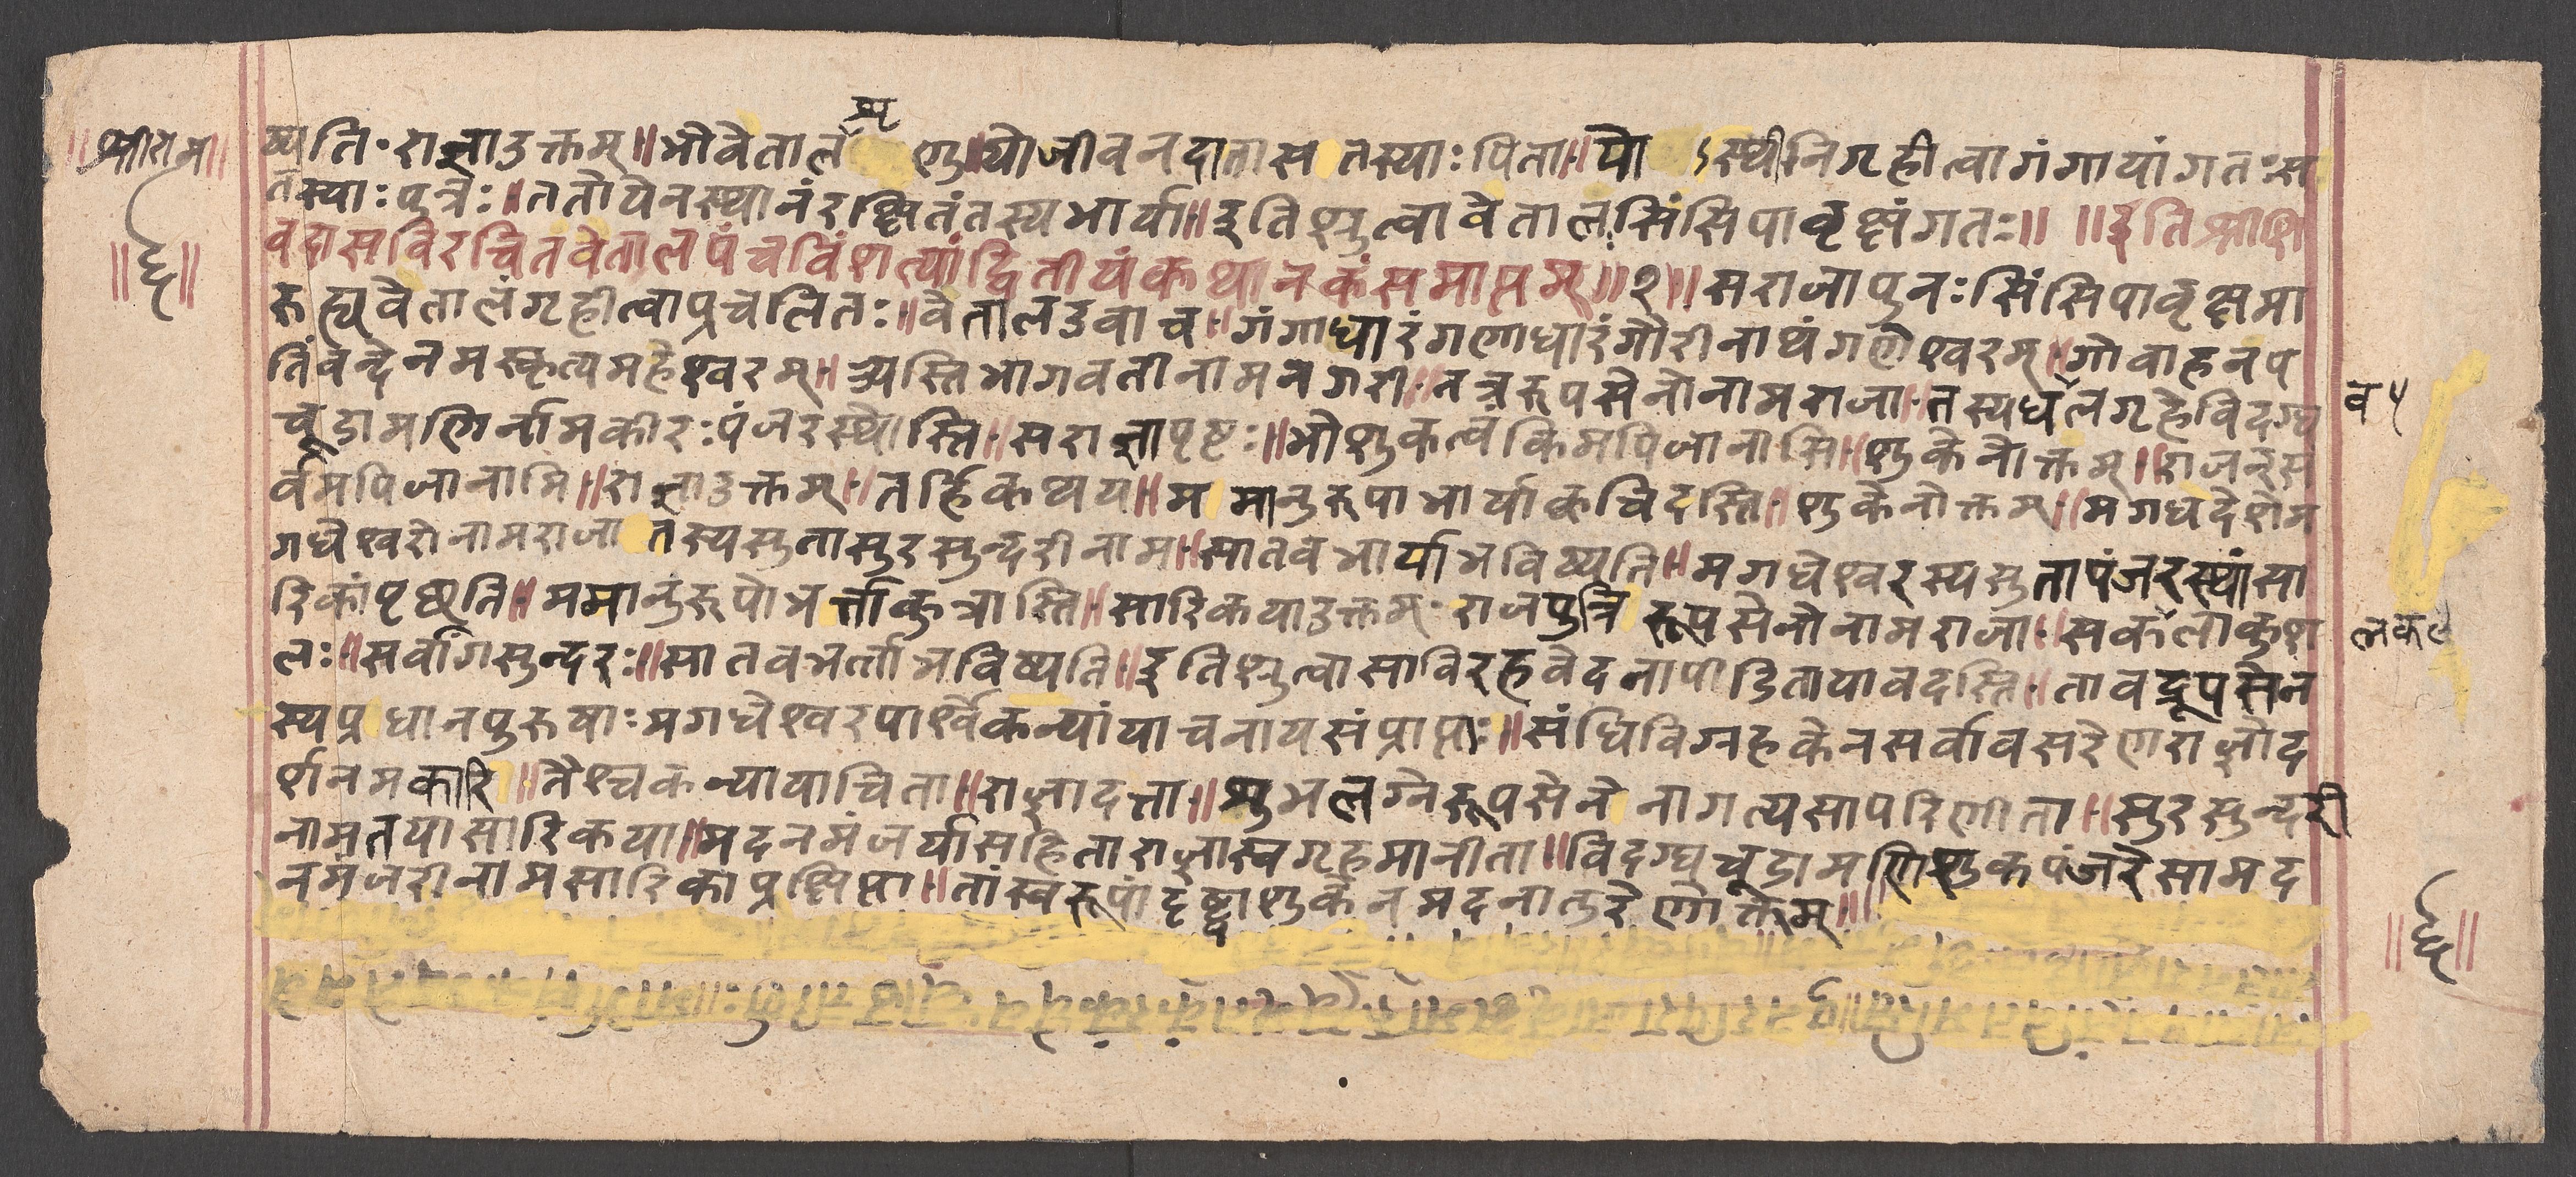 ॥श्रीराम॥
ष्यति·राज्ञाउक्तम्॥भोवेतालशृणु॥योजीवनदातासतस्याःपिता॥योऽस्थीनिगृहीत्वागंगायांगतःस
तस्याःपुत्रः॥ततोयेनस्थानंरक्षितंतस्यभार्या॥इतिश्रुत्वावेतालःसिंसिपावृक्षंगतः॥ ॥इतिश्रीशि
वदासविरचितवेतालपंचविंशत्यांद्वितीयंकथानकंसमाप्तम्॥२॥सराजापुनःसिंसिपावृक्षमा
रुह्यवेतालंगृहीत्वाप्रचलितः॥वेतालउवाच॥गंगाधारंगणाधारंगौरीनाथंगणेश्वरम्॥गोवाहनप
तिंवन्देनमस्कृत्यमहेश्वरम्॥अस्तिभागवतीनामनगरी॥तत्ररूपसेनोनामराजा॥तस्यधलगृहेविदग्ध
व५
चूडामणिर्नामकीरःपंजरस्थोस्ति॥सराज्ञापृष्टः॥भोशुकत्वंकिमपिजानासि॥शुकेनोक्तम्॥राजन्स
र्वमपिजानामि॥राज्ञाउक्तम्॥तर्हिकथय॥ममानुरूपाभार्याक्वचिदस्ति॥शुकेनोक्तम्॥मगधदेशेम
गधेश्वरोनामराजातस्यसुतासुरसुन्दरीनाम॥सातवभार्याभविष्यति॥मगधेश्वरस्यसुतापंजरस्थांसा
रिकांपृछति॥ममानुरूपोभर्त्ताकुत्रास्ति॥सारिकयाउक्तम्·राजपुत्रिरूपसेनोनामराजा॥सकलाकुश
लक९
लः॥सर्वांगसुन्दरः॥सातवभर्त्ताभविष्यति॥इतिश्रुत्वासाविरहवेदनापीडितायावदस्ति॥तावद्रूपसेन
स्यप्रधानपुरुषाःमगधेश्वरपार्श्वेकन्यांयाचनायसंप्राप्ताः॥संधिविग्रहकेनसर्वावसरेणराज्ञोद
र्शनमकारि॥तैश्चकन्यायाचिता॥राज्ञादत्ता॥शुभलग्नेरूपसेनेनागत्यसापरिणीता॥सुरसुन्दरी
नामतयासारिकया॥मदनमंजर्यासहिताराज्ञास्वगृहमानीता॥विदग्धचूडामणिशुकपंजरेसामद
नमंजरीनामसारिकाप्रक्षिप्ता॥तांस्वरूपांदृष्ट्वाशुकेनमदनातुरेणोक्तम्॥